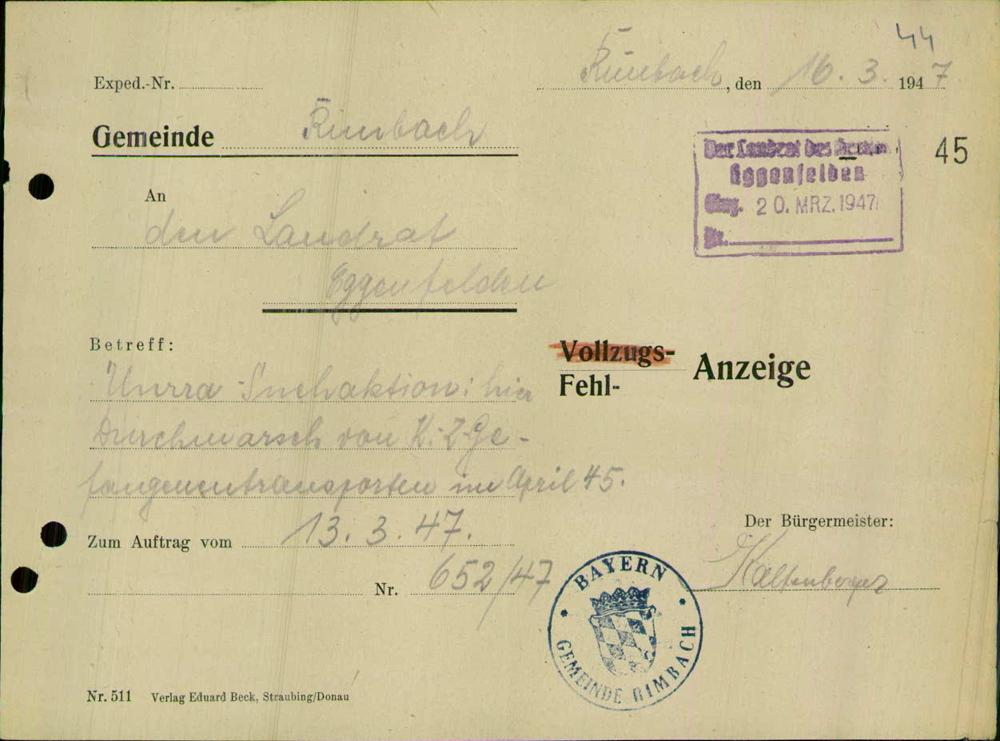 44
Exped.-Nr.
Rimbach, den 16. 3. 1947
Gemeinde Rimbach
45
Der Landrat des
Eggenfelden
Eing. 20. MRZ. 1947
Nr.
An
den Landrat
Eggenfelden
Betreff:
Unrra-Suchaktion: hier
Durchmarsch von K.-Z-Ge-
fangenentransporten im April 45.
Vollzugs-
Fehl-
Anzeige
Zum Auftrag vom 13. 3. 47.
Nr. 652/47
Der Bürgermeister:
Kaltenberger
BAYERN
GEMEINDE RIMBACH
Nr. 511 Verlag Eduard Beck, Straubing/Donau